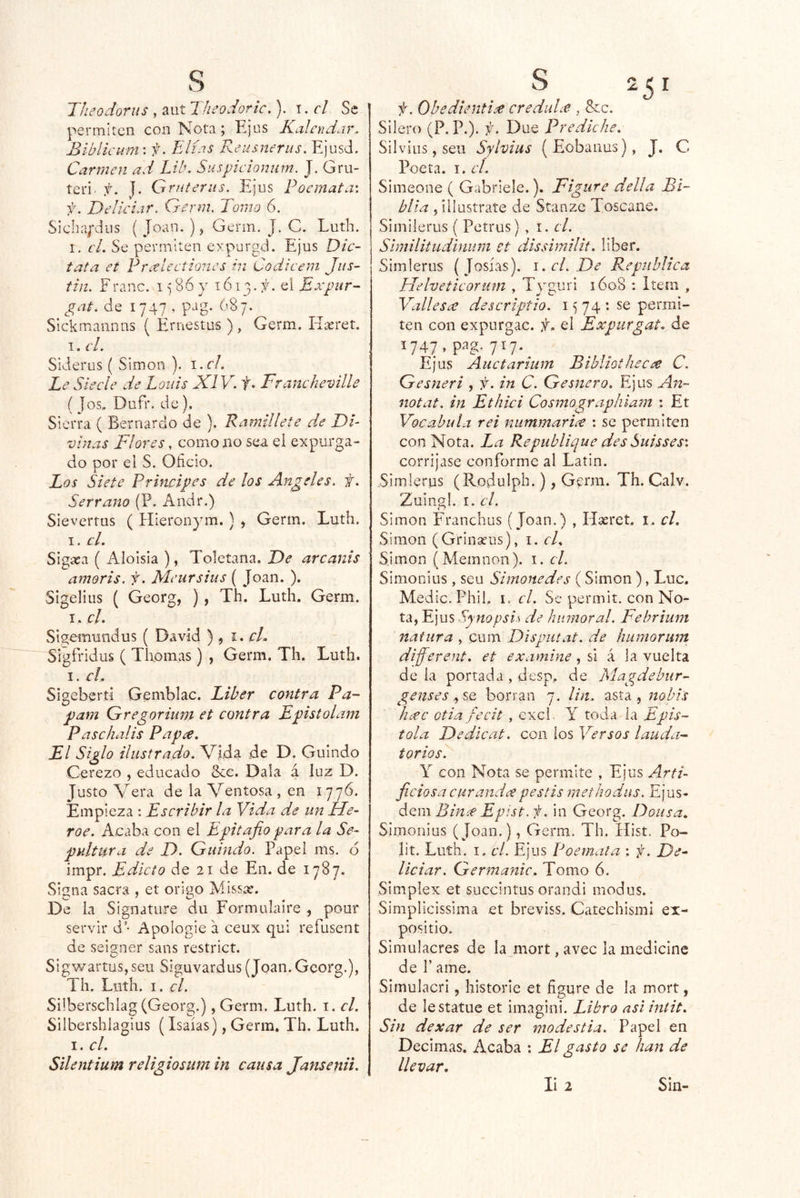 S
Theodorus, aut Theodoric. ). 1. cl Se
permiten con Nota; Ejus Kalendar.
Biblicum: ℣. Elías Reusnerus. Ejusd.
Carmen ad Lib. Suspicionum. J. Gru-
teri. ℣. J. Gruterus. Ejus Poemata:
℣. Deliciar. Germ. Tomo 6.
Sichardus ( Joan. ), Germ. J. C. Luth.
1. cl. Se permiten expurgd. Ejus Dic-
tata et Prælectiones in Codicem Jus-
tin. Franc. 1586 y 1613. ℣. el Expur-
gat. de 1747, pag. 687.
Sickmannns ( Ernestus ), Germ. Hæret.
1. cl.
Siderus ( Simon ). 1. cl.
Le Siecle de Louis XIV. ℣. Francheville
( Jos. Dufr. de ).
Sierra ( Bernardo de ). Ramillete de Di-
vinas Flores, como no sea el expurga-
do por el S. Oficio.
Los Siete Principes de los Angeles. ℣.
Serrano (P. Andr.)
Sievertus ( Hieronym. ), Germ. Luth.
1. cl.
Sigæa ( Aloisia ), Toletana. De arcanis
amoris. ℣. Meursius ( Joan. ).
Sigelius ( Georg, ), Th. Luth. Germ.
1. cl.
Sigemundus ( David ), 1. cl.
Sigfridus ( Thomas ), Germ. Th. Luth.
1. cl.
Sigeberti Gemblac. Liber contra Pa-
pam Gregorium et contra Epistolam
Paschalis Papæ.
El Siglo ilustrado. Vida de D. Guindo
Cerezo, educado &c. Dala á luz D.
Justo Vera de la Ventosa, en 1776.
Empieza : Escribir la Vida de un He-
roe. Acaba con el Epitafio para la Se-
pultura de D. Guindo. Papel ms. ó
impr. Edicto de 21 de En. de 1787.
Signa sacra, et origo Missæ.
De la Signature du Formulaire, pour
servir d'- Apologie à ceux qui refusent
de seigner sans restrict.
Sigwartus, seu Siguvardus (Joan. Georg.),
Th. Luth. 1. cl.
Silberschlag (Georg.), Germ. Luth. 1. cl.
Silbershlagius ( Isaías), Germ. Th. Luth.
1. cl.
Silentium religiosum in causa Jansenii.
S 251
℣. Obedientiæ credulæ, &c.
Silero (P. P.). ℣. Due Prediche.
Silvius, seu Sylvius ( Eobanus), J. C
Poeta. 1. cl.
Simeone ( Gabriele. ). Figure della Bi-
blia, illustrate de Stanze Toscane.
Similerus ( Petrus ), 1. cl.
Similitudinum et dissimilit. liber.
Simlerus ( Josías). 1. cl. De Republica
Helveticorum, Tyguri 1608 : Item,
Vallesæ descriptio. 1574: se permi-
ten con expurgac. ℣. el Expurgat. de
1747, pag. 717.
Ejus Auctarium Bibliothecæ C.
Gesneri, ℣. in C. Gesnero. Ejus An-
notat. in Ethici Cosmographiam : Et
Vocabula rei nummariæ : se permiten
con Nota. La Republique des Suisses:
corrijase conforme al Latin.
Simlerus (Rodulph. ), Germ. Th. Calv.
Zuingl. 1. cl.
Simon Franchus ( Joan.), Hæret. 1. cl.
Simon (Grinæus), 1. cl.
Simon (Memnon). 1. cl.
Simonius, seu Simonedes ( Simon ), Luc.
Medic. Phil. 1. cl. Se permit. con No-
ta, Ejus Synopsis de humoral. Febrium
natura, cum Disputat. de humorum
different. et examine, si á la vuelta
de la portada, desp. de Magdebur-
genses, se borran 7. lin. asta, nobis
hæc otia fecit, excl. Y toda la Epis-
tola Dedicat. con los Versos lauda-
torios.
Y con Nota se permite, Ejus Arti-
ficiosa curandæ pestis methodus. Ejus-
dem Binæ Epist. ℣. in Georg. Dousa.
Simonius (Joan.), Germ. Th. Hist. Po-
lit. Luth. 1. cl. Ejus Poemata : ℣. De-
liciar. Germanic. Tomo 6.
Simplex et succintus orandi modus.
Simplicissima et breviss. Catechismi ex-
positio.
Simulacres de la mort, avec la medicine
de l' ame.
Simulacri, historie et figure de la mort,
de le statue et imagini. Libro asi intit.
Sin dexar de ser modestia. Papel en
Decimas. Acaba : El gasto se han de
llevar.
Ii 2 Sin-